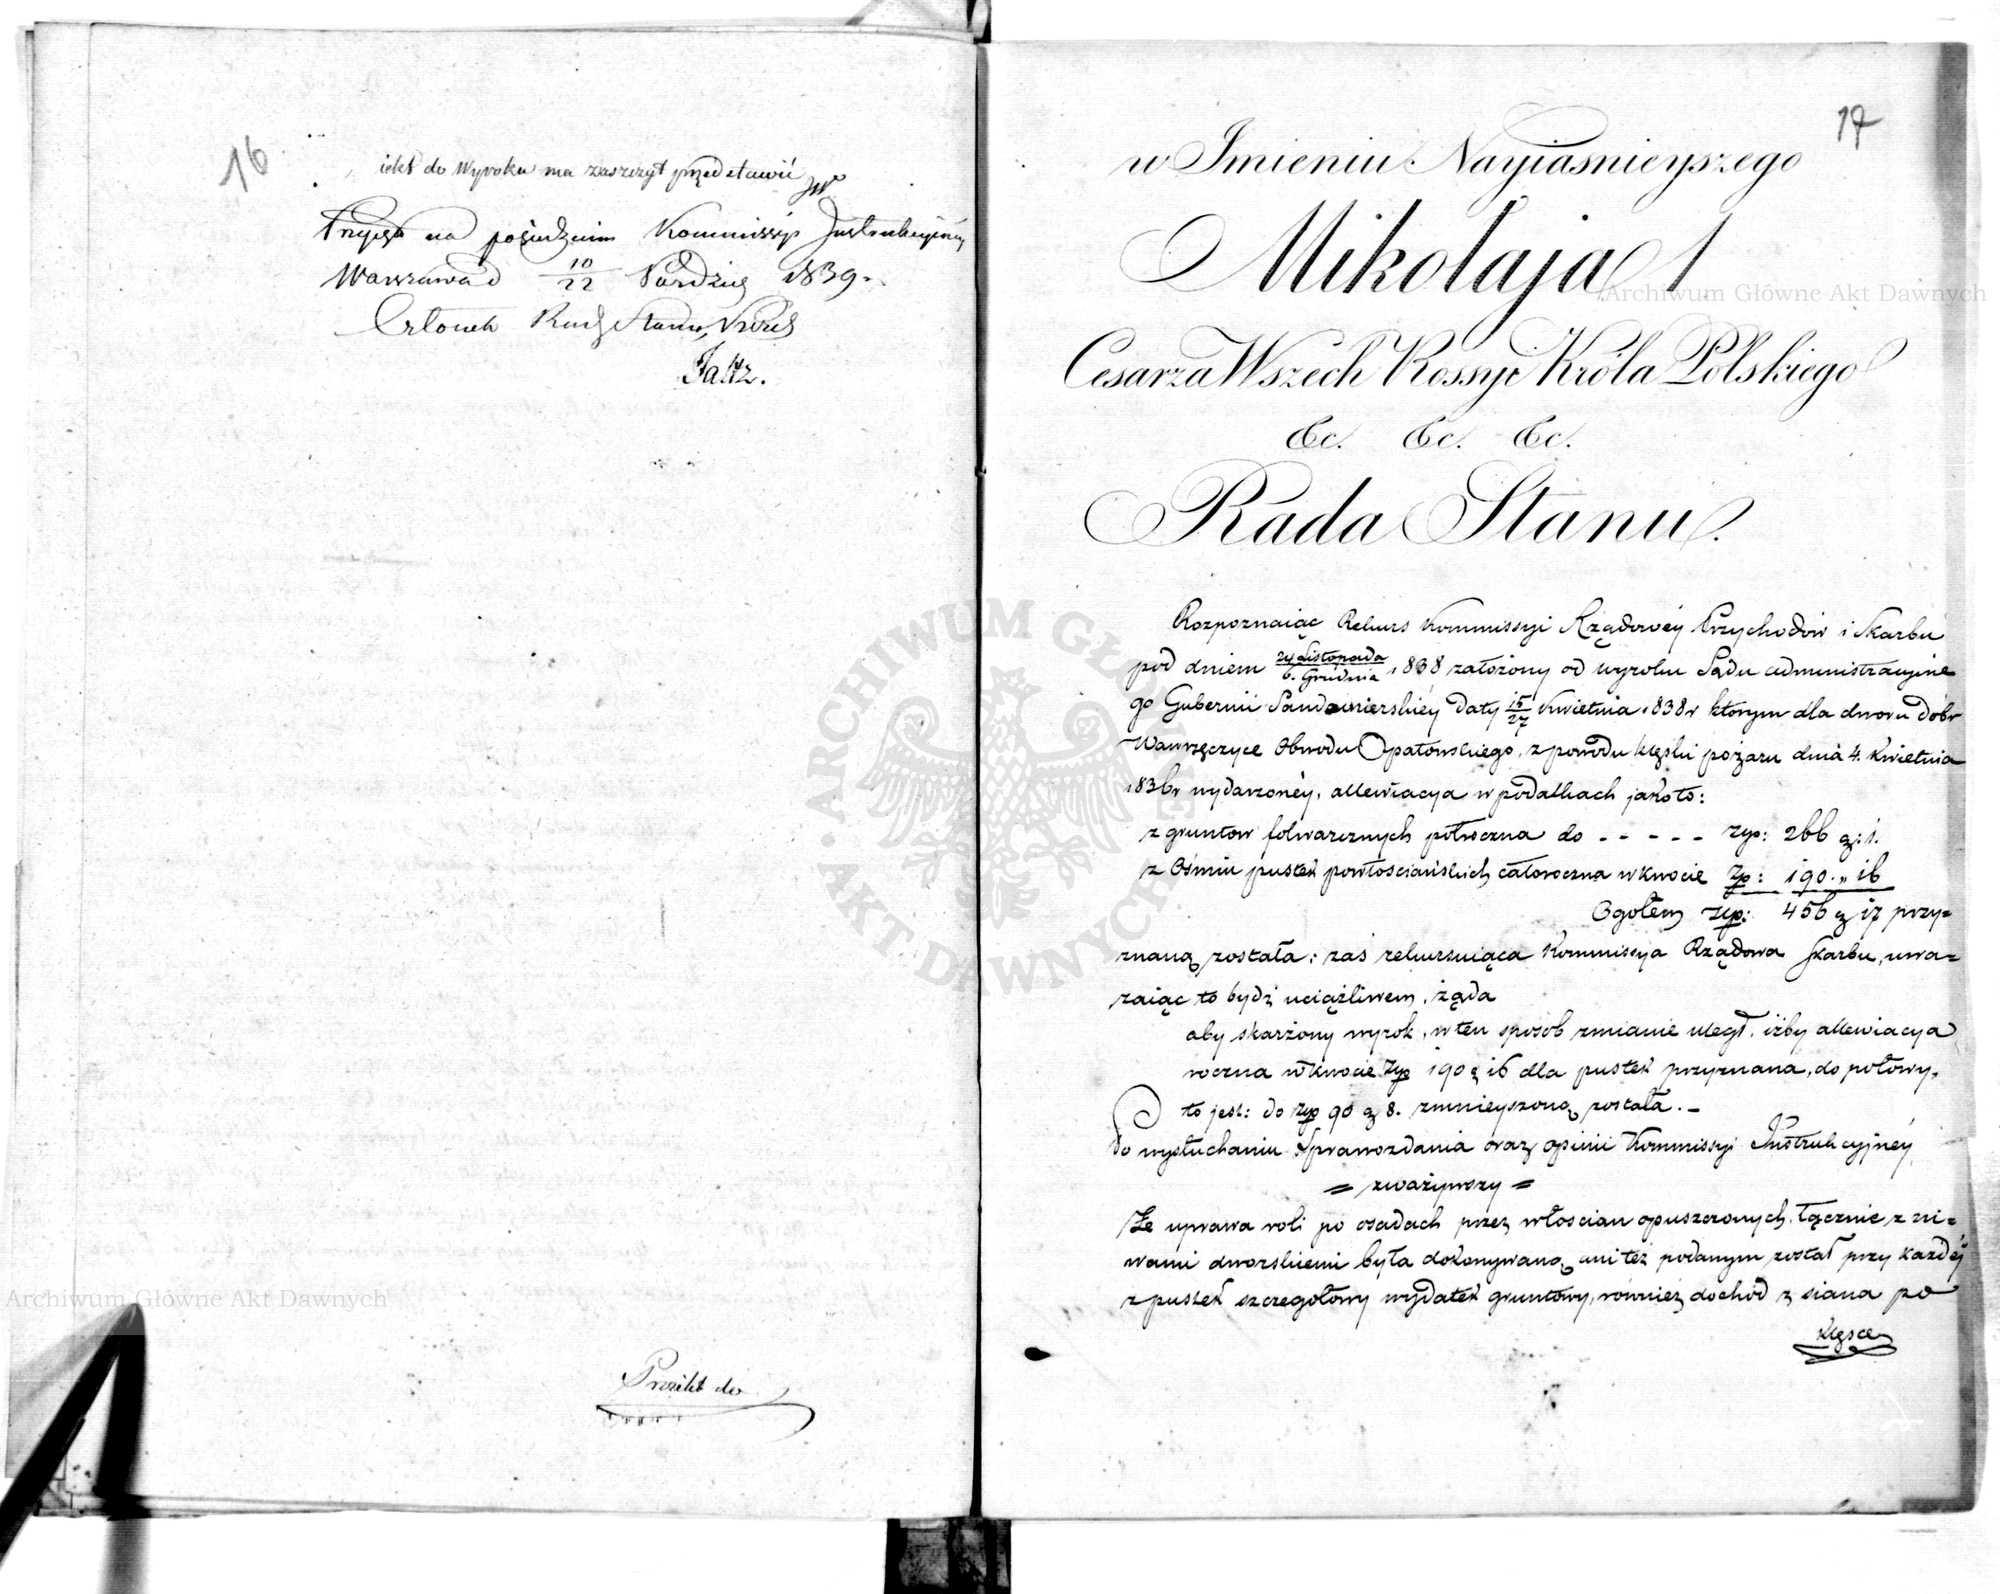 16
iekt do Wyroku ma zaszczyt przedstawić
Przyięto na posiedzeniu Kommissyi Instrukcyiney
Warszawa d 10/22 Paździer 1839.
Członek Rady Stanu, Prezes
Faltz.
Proiekt do
17
w Imieniu Nayiasnieyszego
Mikołaja I
Cesarza Wszech Rossyi Króla Polskiego
&c. &c. &c.
Rada Stanu.
Rozpoznaiąc Rekurs Kommissyi Rządowéy Przychodów i Skarbu
pod dniem 24 Listopada/6. Grudnia 1838 założony od wyroku Sądu administracyine
go Gubernii Sandomierskiéy daty 15/27 Kwietnia 1838 r którym dla dworu dóbr
Wawrzęczyce Obwodu Opatowskiego, z powodu klęski pożaru dnia 4. Kwietnia
1836 r wydarzonéy, allewiacya w podatkach jako to:
z gruntów folwarcznych półroczna do - - - - - Złp: 266 g: 1.
z Ośmiu pustek powłosciańskich całoroczna w kwocie Złp: 190 „ 16
Ogółem Złp: 456 g 17 przy=
znaną została; zaś rekursuiąca Kommissya Rządowa Skarbu, uwa=
żaiąc to bydź uciążliwem, żąda
aby skarżony wyrok, w ten sposób zmianie uległ, iżby allewiacya
roczna w kwocie Złp 190 g 16 dla pustek przyznana, do połowy,
to jest: do Złp 90 g 8. zmnieyszoną została. –
Po wysłuchaniu Sprawozdania oraz opinii Kommissyi Instrukcyjnéy
= zważywszy =
Że uprawa roli po osadach przez włoscian opuszczonych, łącznie z ni=
wami dworskiemi była dokonywaną, ani też podanym został przy każdéj
z pustek szczegółowy wydatek gruntowy, również dochód z siana po
klęsce
ARCHIWUM GŁÓWNE AKT DAWNYCH
Archiwum Główne Akt Dawnych
Archiwum Główne Akt Dawnych